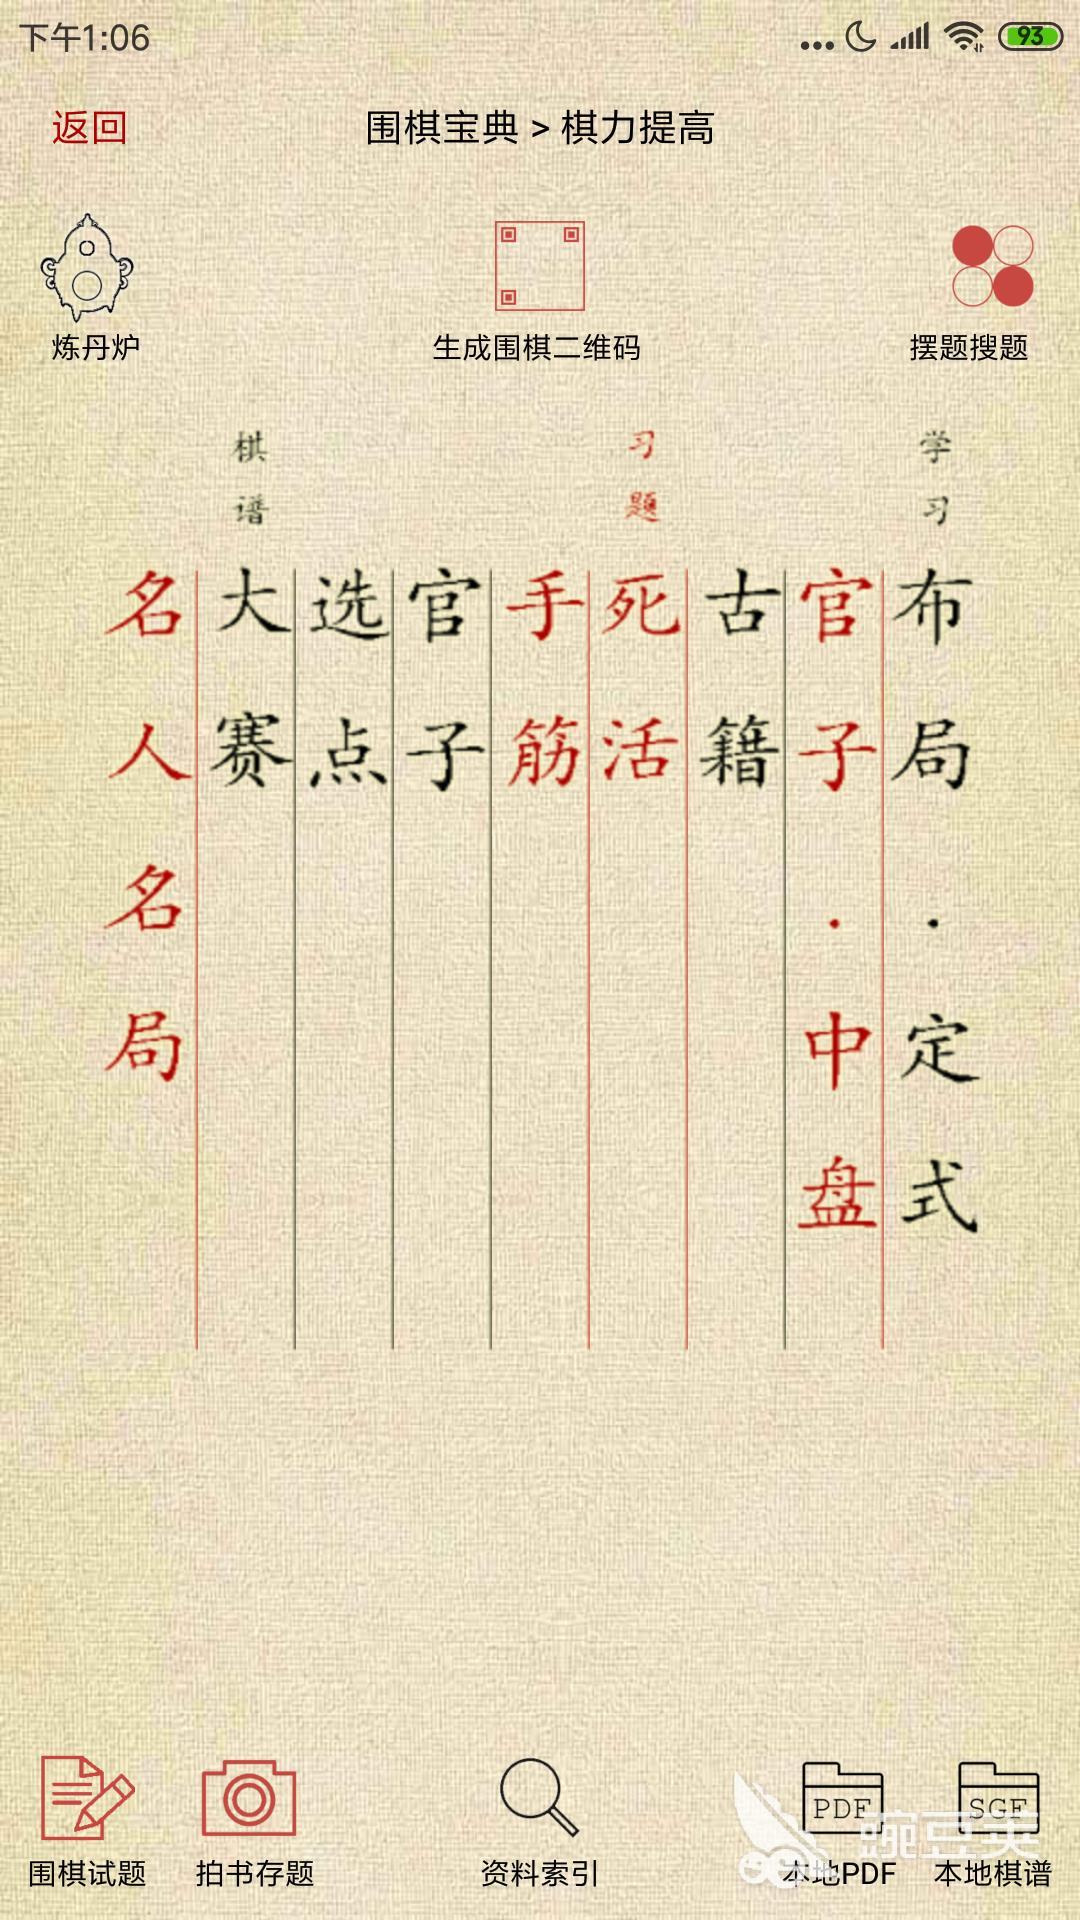 下午1:06
93
返回
围棋宝典 > 棋力提高
炼丹炉
生成围棋二维码
摆题搜题
学习
习题
棋谱
布局·定式
官子·中盘
古籍
死活
手筋
官子
选点
大赛
名人名局
PDF
SGF
豌豆荚
围棋试题
拍书存题
资料索引
本地PDF
本地棋谱